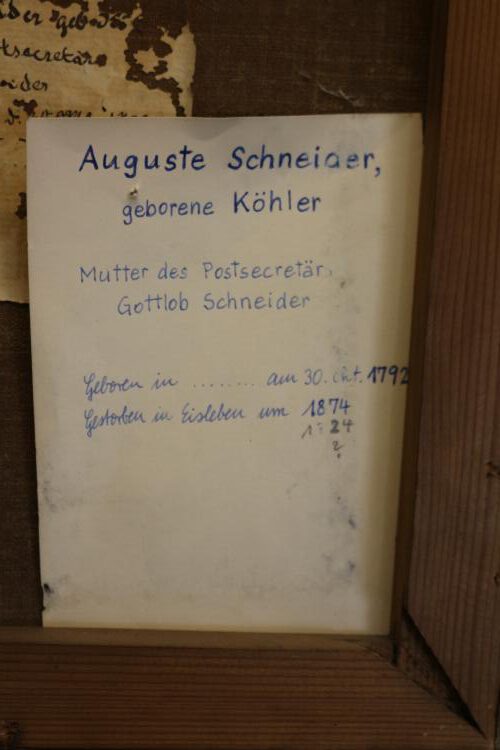 der geb
tsecretär
eider
Auguste Schneider,
geborene Köhler
Mutter des Postsecretär,
Gottlob Schneider
Geboren in ........ am 30. 1792
Gestorben in Eisleben um 1874
24
?